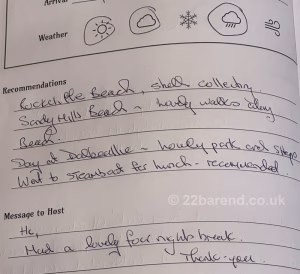 Arrival
Weather
Recommendations
Rockcliffe Beach, shell collecting.
Sandy Hills Beach - lovely walks along
Beach.
Day at Dalbeattie - lovely park and shops
Went to Steamboat for lunch - recommended.
© 22barend.co.uk
Message to Host
Hi,
Had a lovely four nights break.
Thank-you